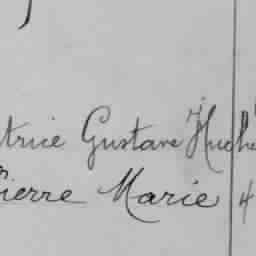 trice Gustave Huche
Pierre Marie 4